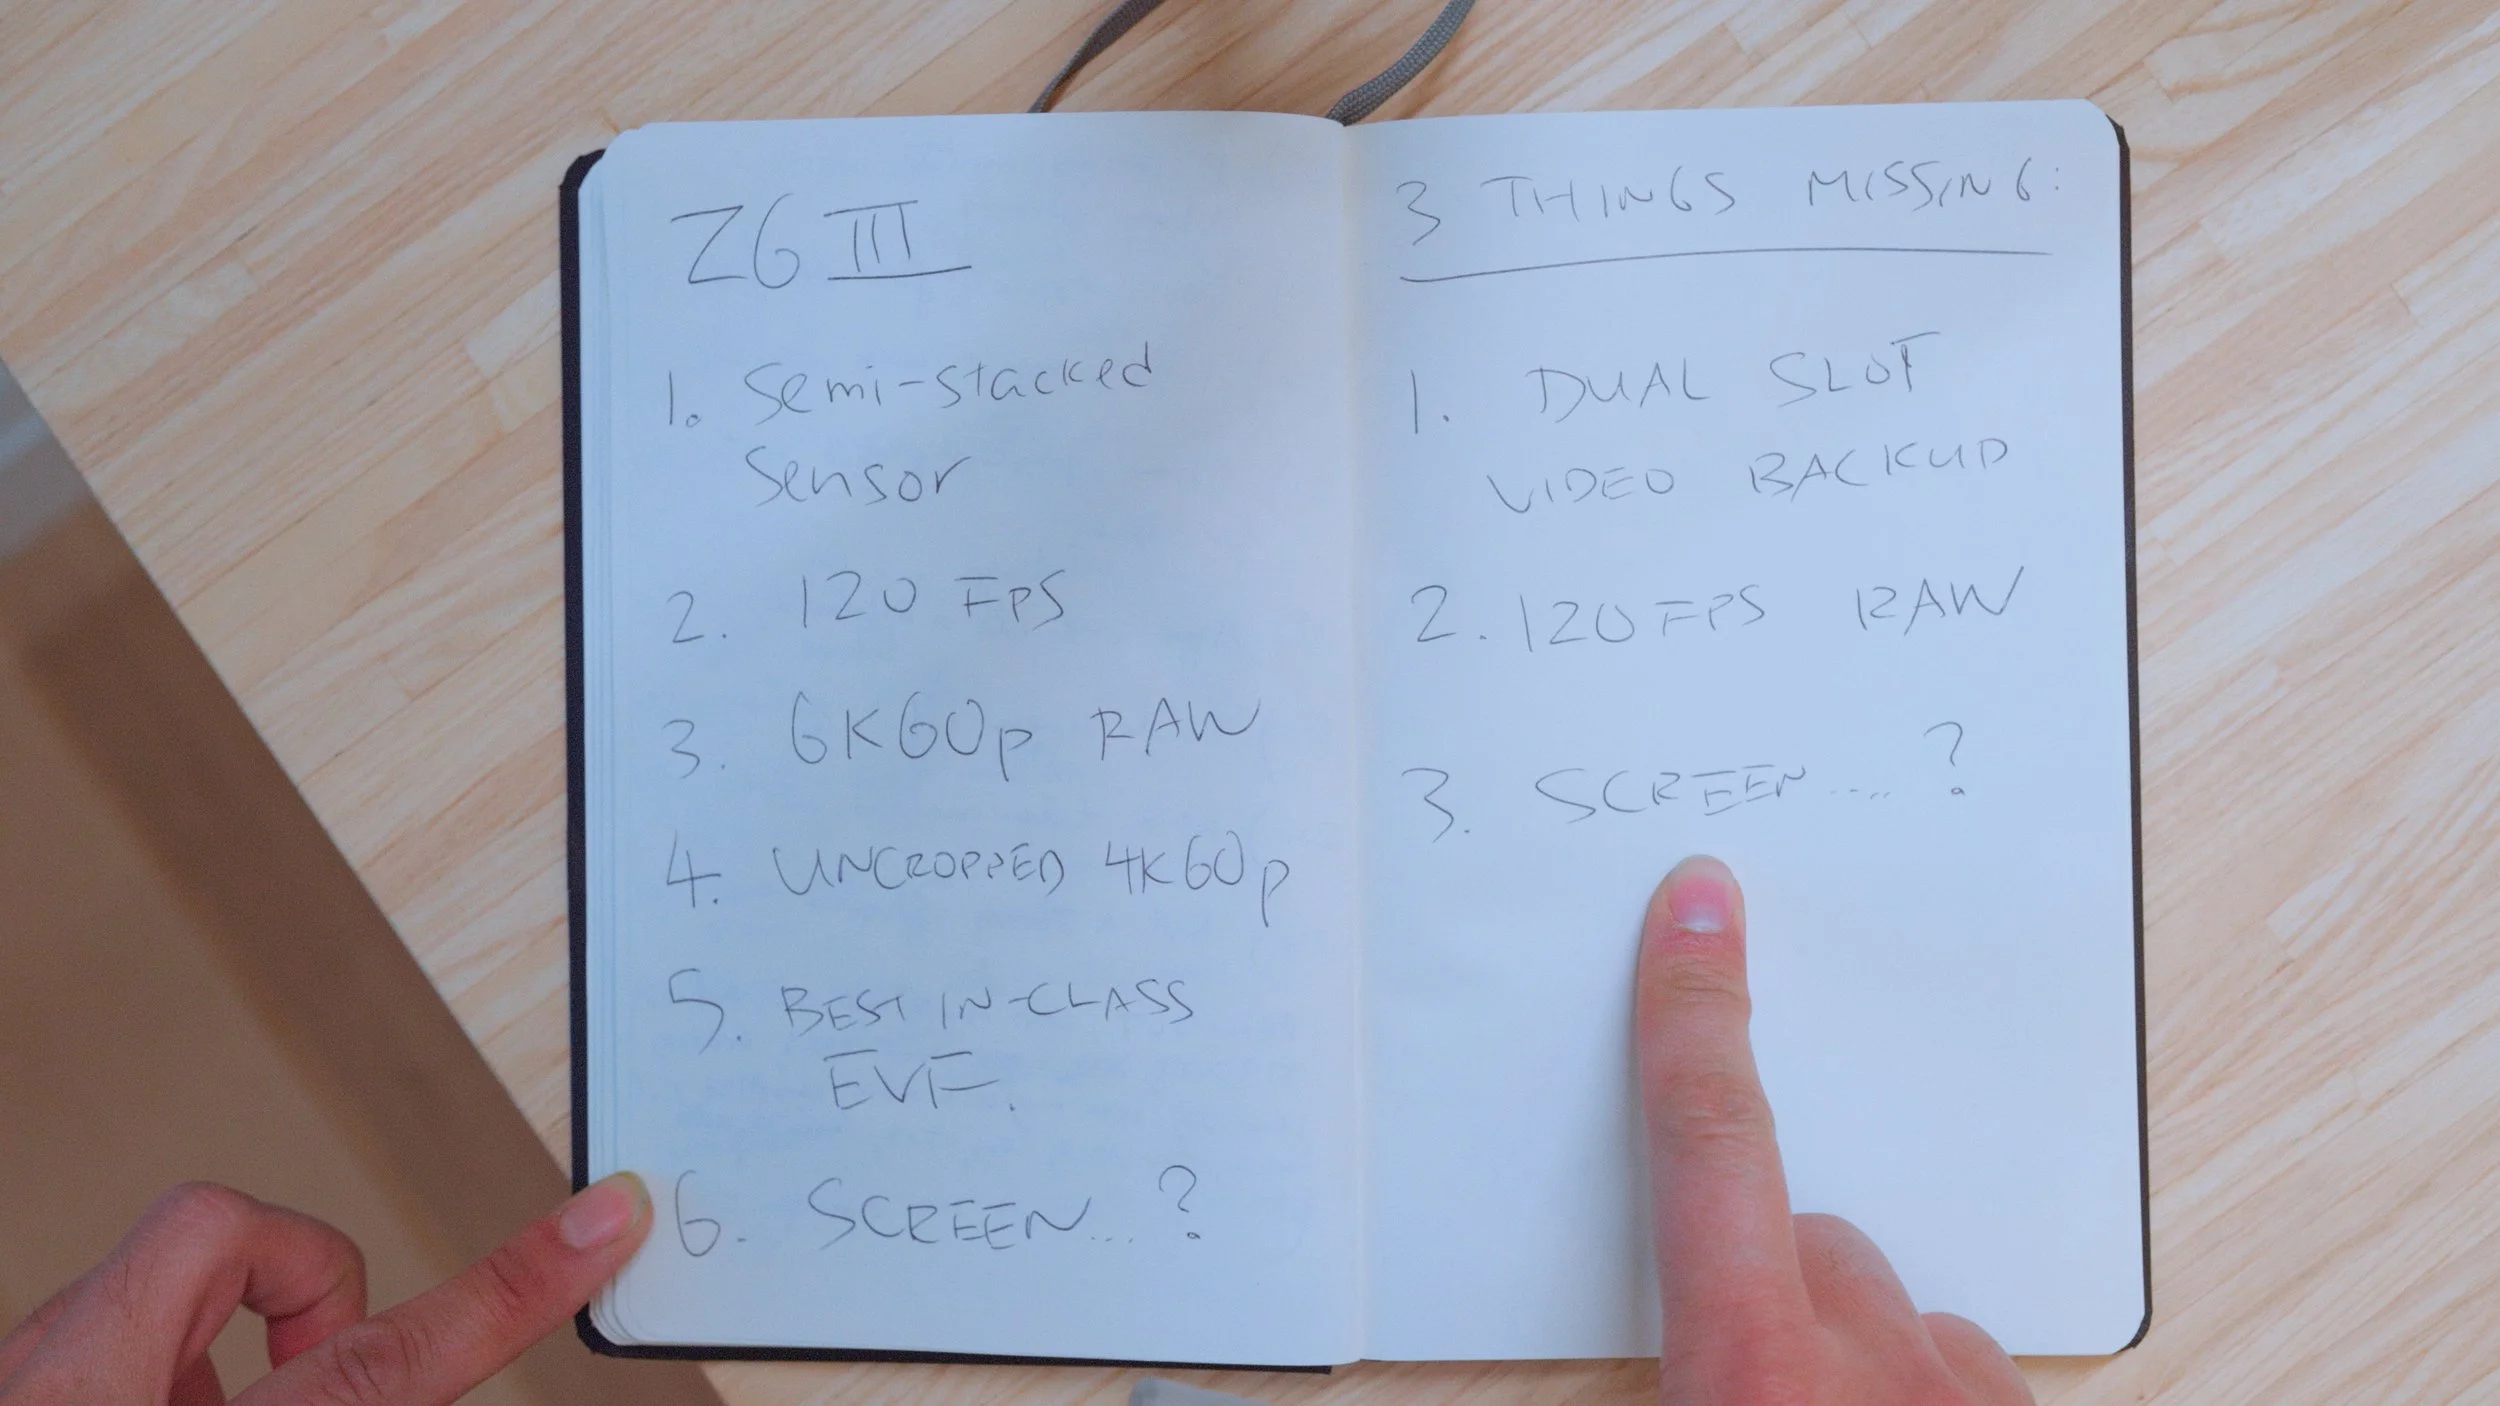 Z6 III
1. Semi-stacked
Sensor
2. 120 FPS
3. 6K60p RAW
4. UNCROPPED 4K60p
5. BEST IN-CLASS
EVF.
6. SCREEN....?
3 THINGS MISSING:
1. DUAL SLOT
VIDEO BACKUP
2. 120FPS RAW
3. SCREEN....?